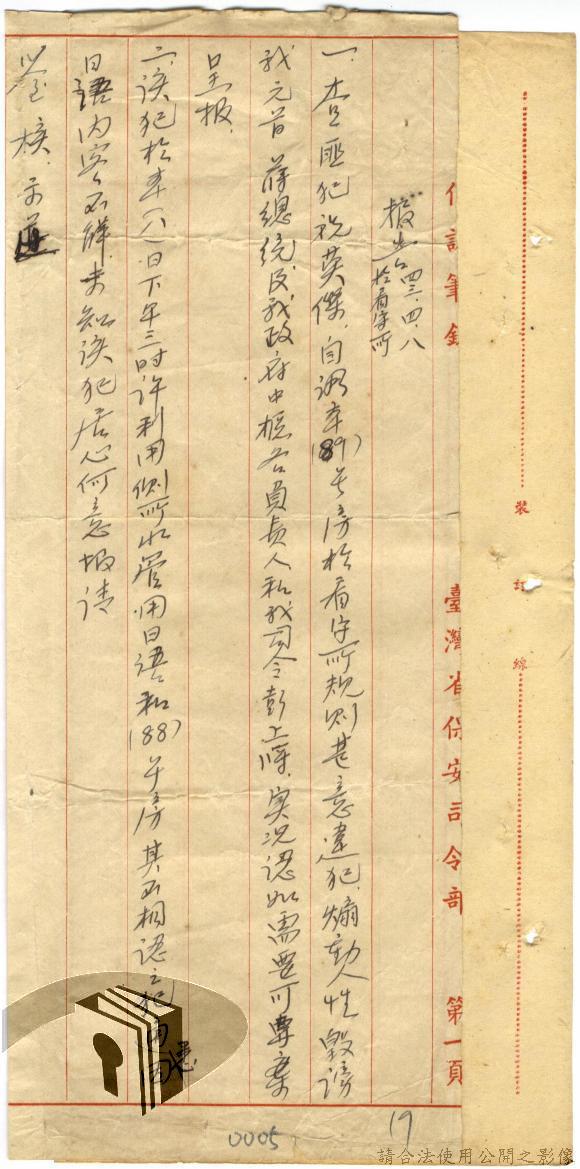 裝訂線
偵訊筆錄 臺灣省保安司令部 第一頁
報告 四三、四、八
於看守所
一、查匪犯祝英傑，自調本(89)号房於看守所規則甚意違犯，煽動人性毀謗
我元首 蔣總統及我政府中樞各員長人和我司令彭上將，實況認如需要可專案
呈报。
二、该犯於本(八)日下午三时许利用側所水管用日語和(88)号房其不相認之犯
日語内容不解，未知该犯居心何意报請
鉴核示
0005
19
請合法使用公開之影像